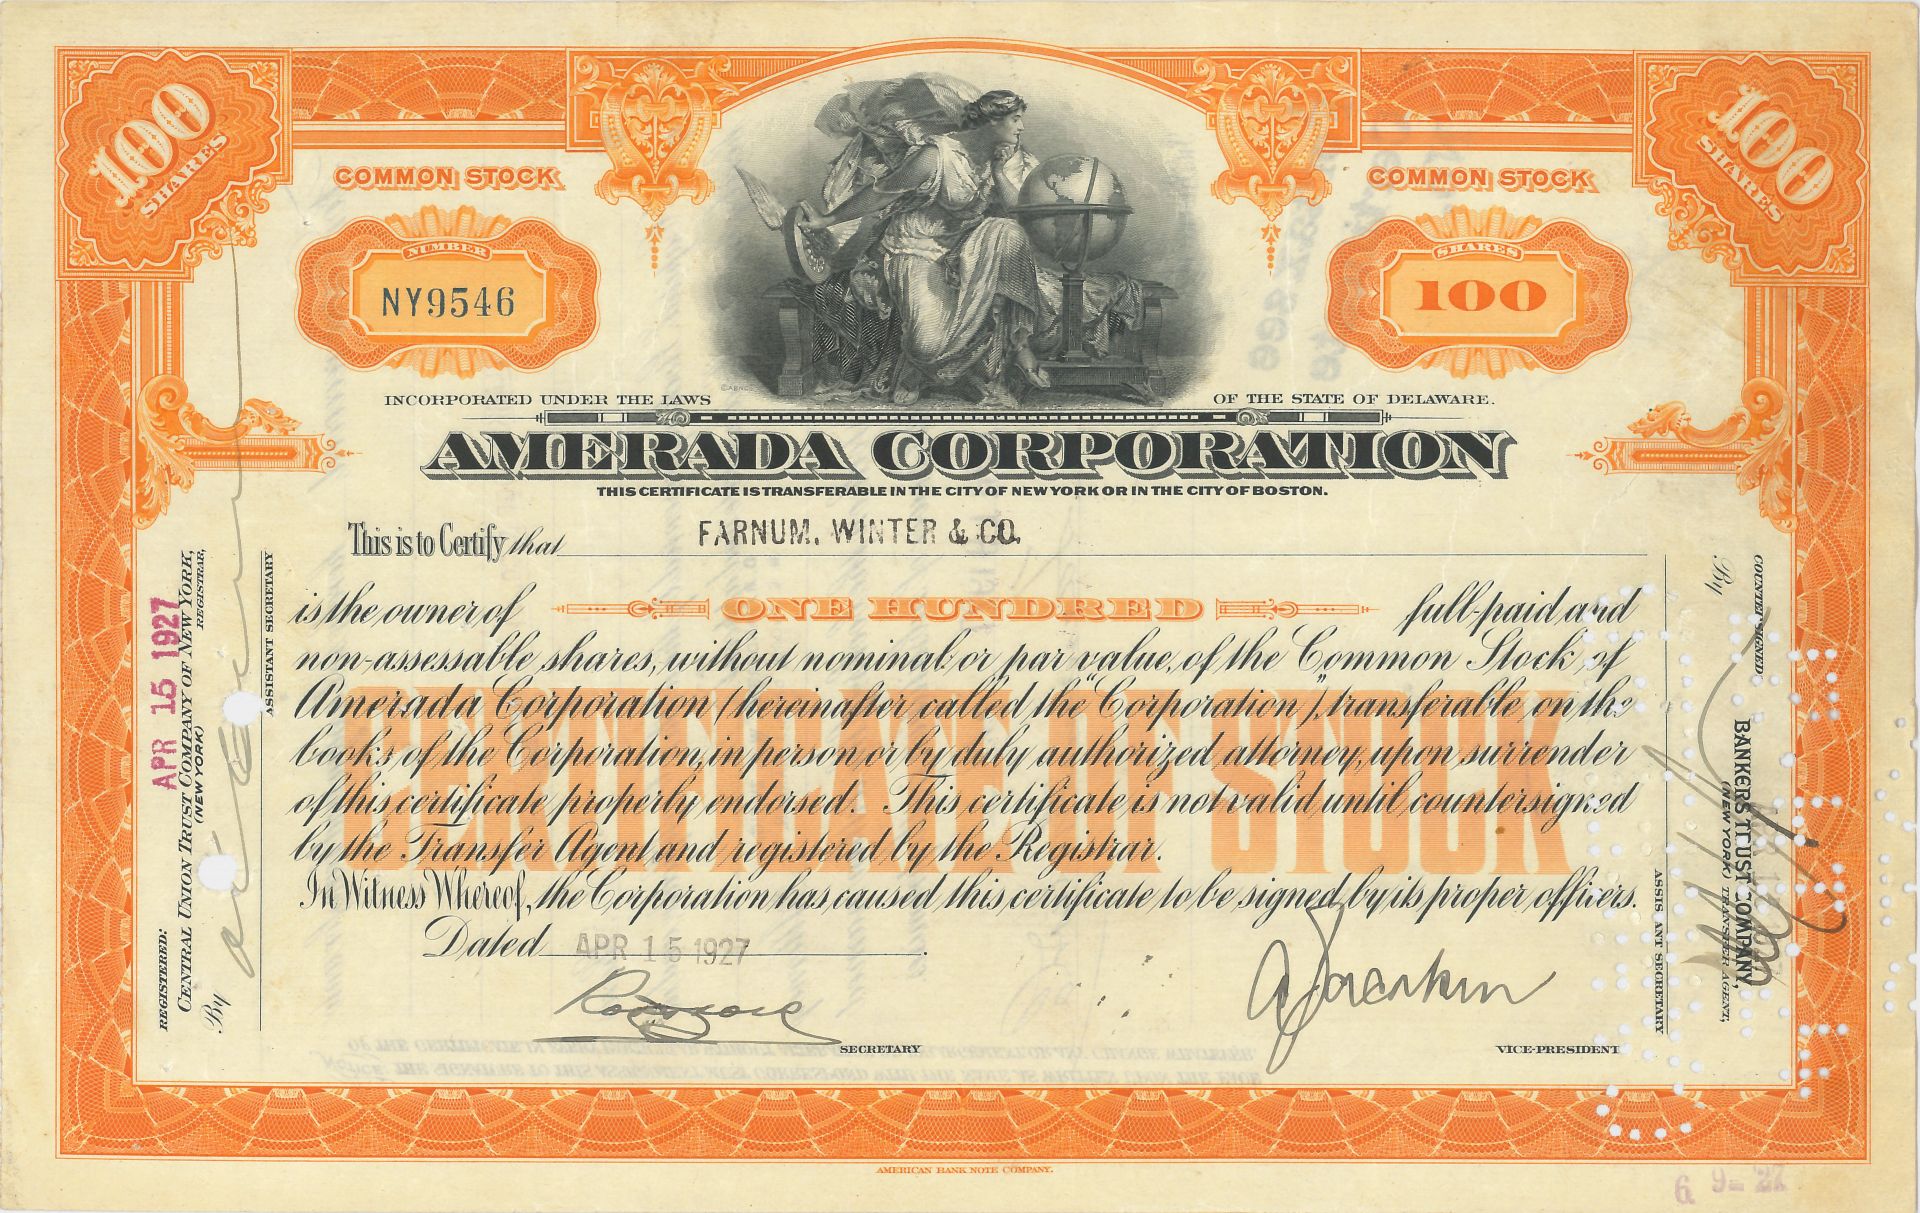 100
SHARES
100
SHARES
COMMON STOCK
COMMON STOCK
NUMBER
NY9546
SHARES
100
©ABNCO
INCORPORATED UNDER THE LAWS OF THE STATE OF DELAWARE.
AMERADA CORPORATION
THIS CERTIFICATE IS TRANSFERABLE IN THE CITY OF NEW YORK OR IN THE CITY OF BOSTON.
This is to Certify that FARNUM, WINTER & CO.
is the owner of ONE HUNDRED full-paid and
non-assessable shares, without nominal or par value, of the Common Stock of
Amerada Corporation (hereinafter called the "Corporation"), transferable on the
books of the Corporation, in person or by duly authorized attorney, upon surrender
of this certificate properly endorsed. This certificate is not valid until countersigned
by the Transfer Agent and registered by the Registrar.
In Witness Whereof, the Corporation has caused this certificate to be signed by its proper officers.
CERTIFICATE OF STOCK
Dated APR 15 1927.
SECRETARY
VICE-PRESIDENT
REGISTERED:
CENTRAL UNION TRUST COMPANY OF NEW YORK,
(NEW YORK) REGISTRAR,
By
ASSISTANT SECRETARY
APR 15 1927
COUNTERSIGNED:
BANKERS TRUST COMPANY,
(NEW YORK) TRANSFER AGENT,
By
ASSISTANT SECRETARY
AMERICAN BANK NOTE COMPANY.
6 9- 27